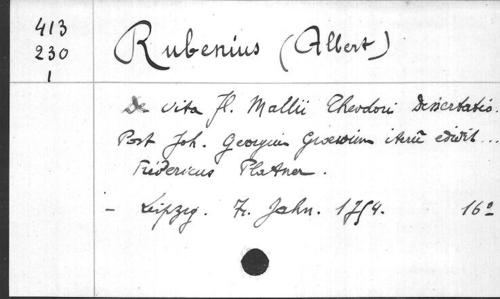 413
230
1
Rubenius (Albert)
De vita Fl. Mallii Theodori Dissertatio.
Post Joh. Georgium Graevium iterū edidit ...
Fridericus Platner.
- Leipzig. F. Jahn. 1754. 16º